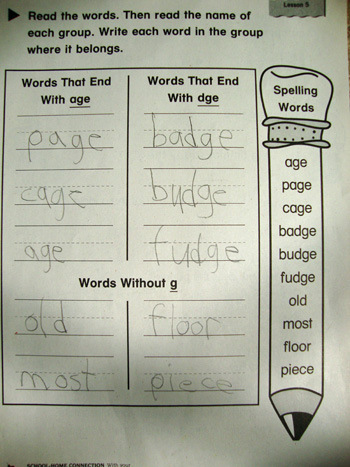 Lesson 5
Read the words. Then read the name of
each group. Write each word in the group
where it belongs.
Words That End
With age
page
cage
age
Words That End
With dge
badge
budge
fudge
Words Without g
old
floor
most
piece
Spelling
Words
age
page
cage
badge
budge
fudge
old
most
floor
piece
SCHOOL-HOME CONNECTION With your